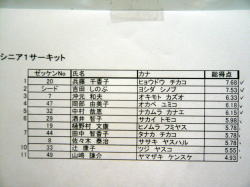 シニア1サーキット
ゼッケンNo 氏名 カナ 総得点
1 20 兵庫 千香子 ヒョウドウ チカコ 7.68
2 シード 吉田 しのぶ ヨシダ シノブ 7.53
3 7 沖元 和夫 オキモト カズオ 6.33
4 38 岡部 由美子 オカベ ユミコ 6.18
5 32 中村 哉恵 ナカムラ カナエ 6.15
6 29 酒井 智子 サカイ トモコ 5.98
19 樋野村 文康 ヒノムラ フミヤス 5.78
7 44 田中 智香子 タナカ チカコ 5.78
8 佐々木 泰治 ササキ ヤスハル 5.78
10 33 辻 康子 ツジ ヤスコ 5.55
11 49 山﨑 謙介 ヤマザキ ケンスケ 4.93